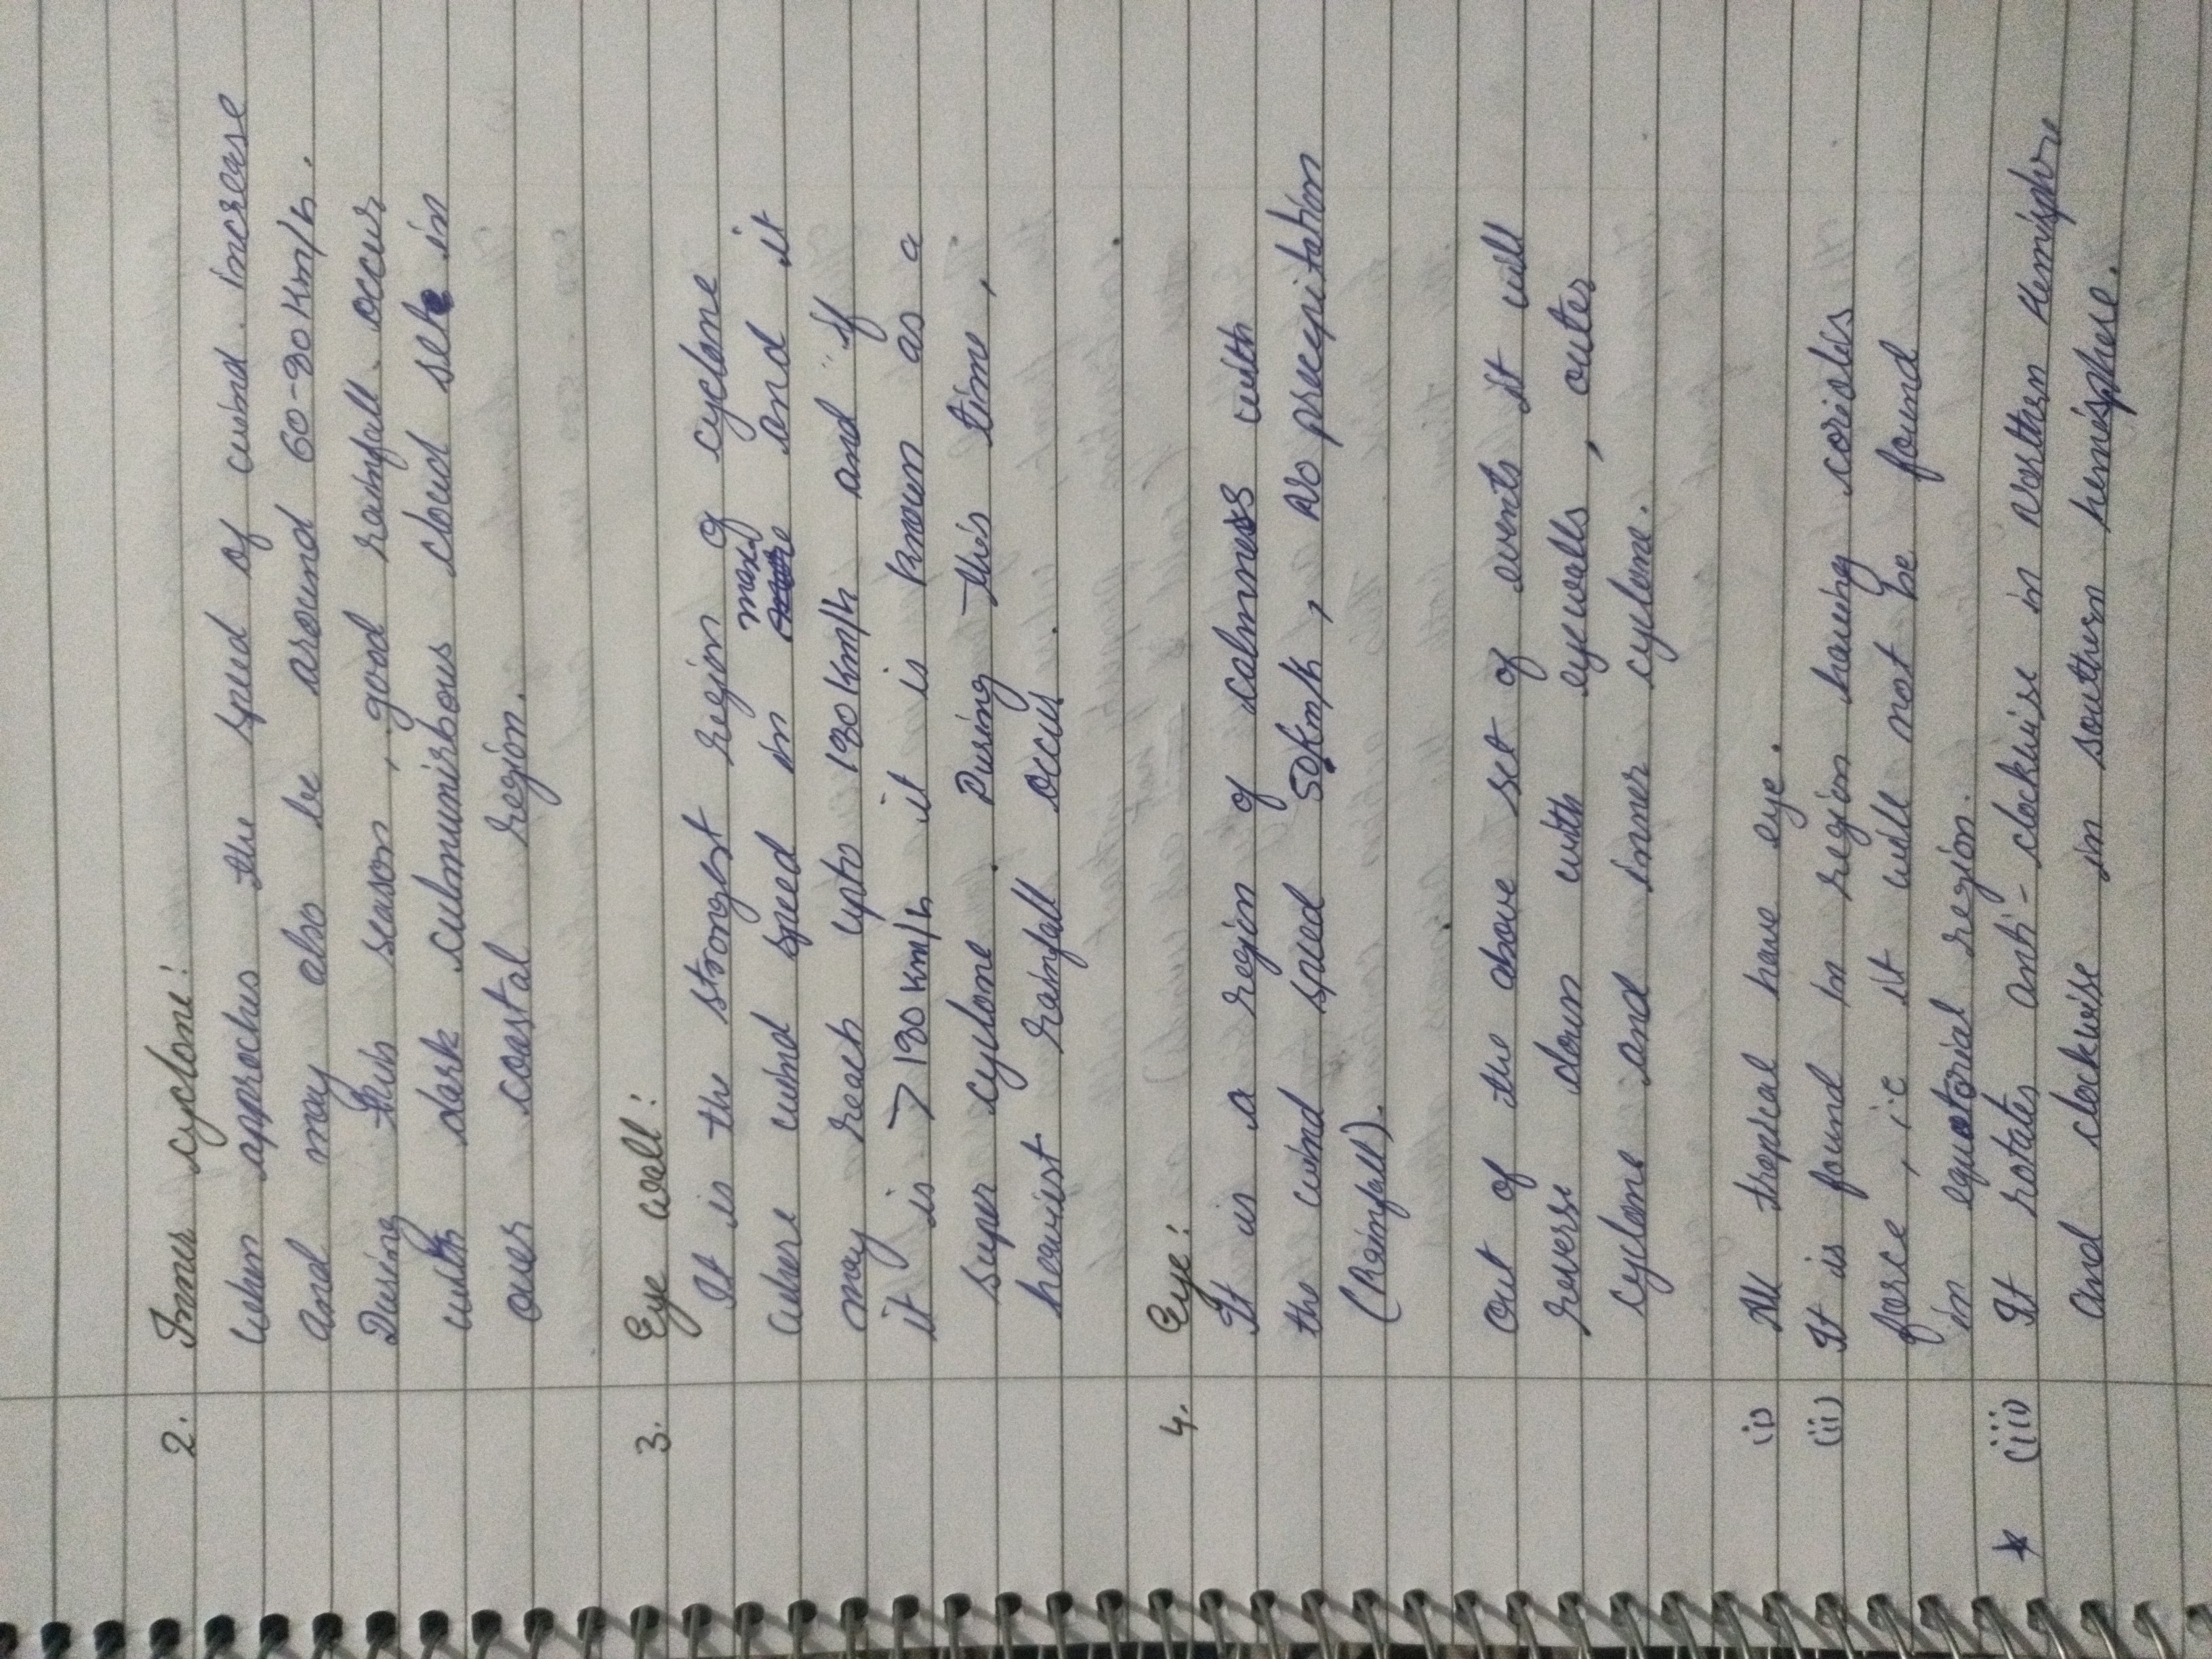 2. Inner cyclone:
when approches the speed of wind increase
and may also be around 60-90 Km/h.
During this season, good rainfall occur
with dark culmunirbous cloud set in
over coastal region.
3. Eye wall:
It is the strongest region of cyclone
where wind speed in max and it
may reach upto 180 Km/h and if
it is > 180 Km/h it is known as a
super cylone. During this time,
heavist rainfall occus.
4. Eye:
It is a region of calmness with
the wind speed 50Km/h, No precepitation
(Rainfall).
Out of the above set of events it will
revers down with eyewalls, outer
cyclone and inner cylone.
(i) All tropical have eye.
(ii) It is found in region having coriolis
force, i.e it will not be found
in equatorial region.
* (iii) It rotates anti-clockwise in northen Hemisphre
and clockwise in southern hemisphere.